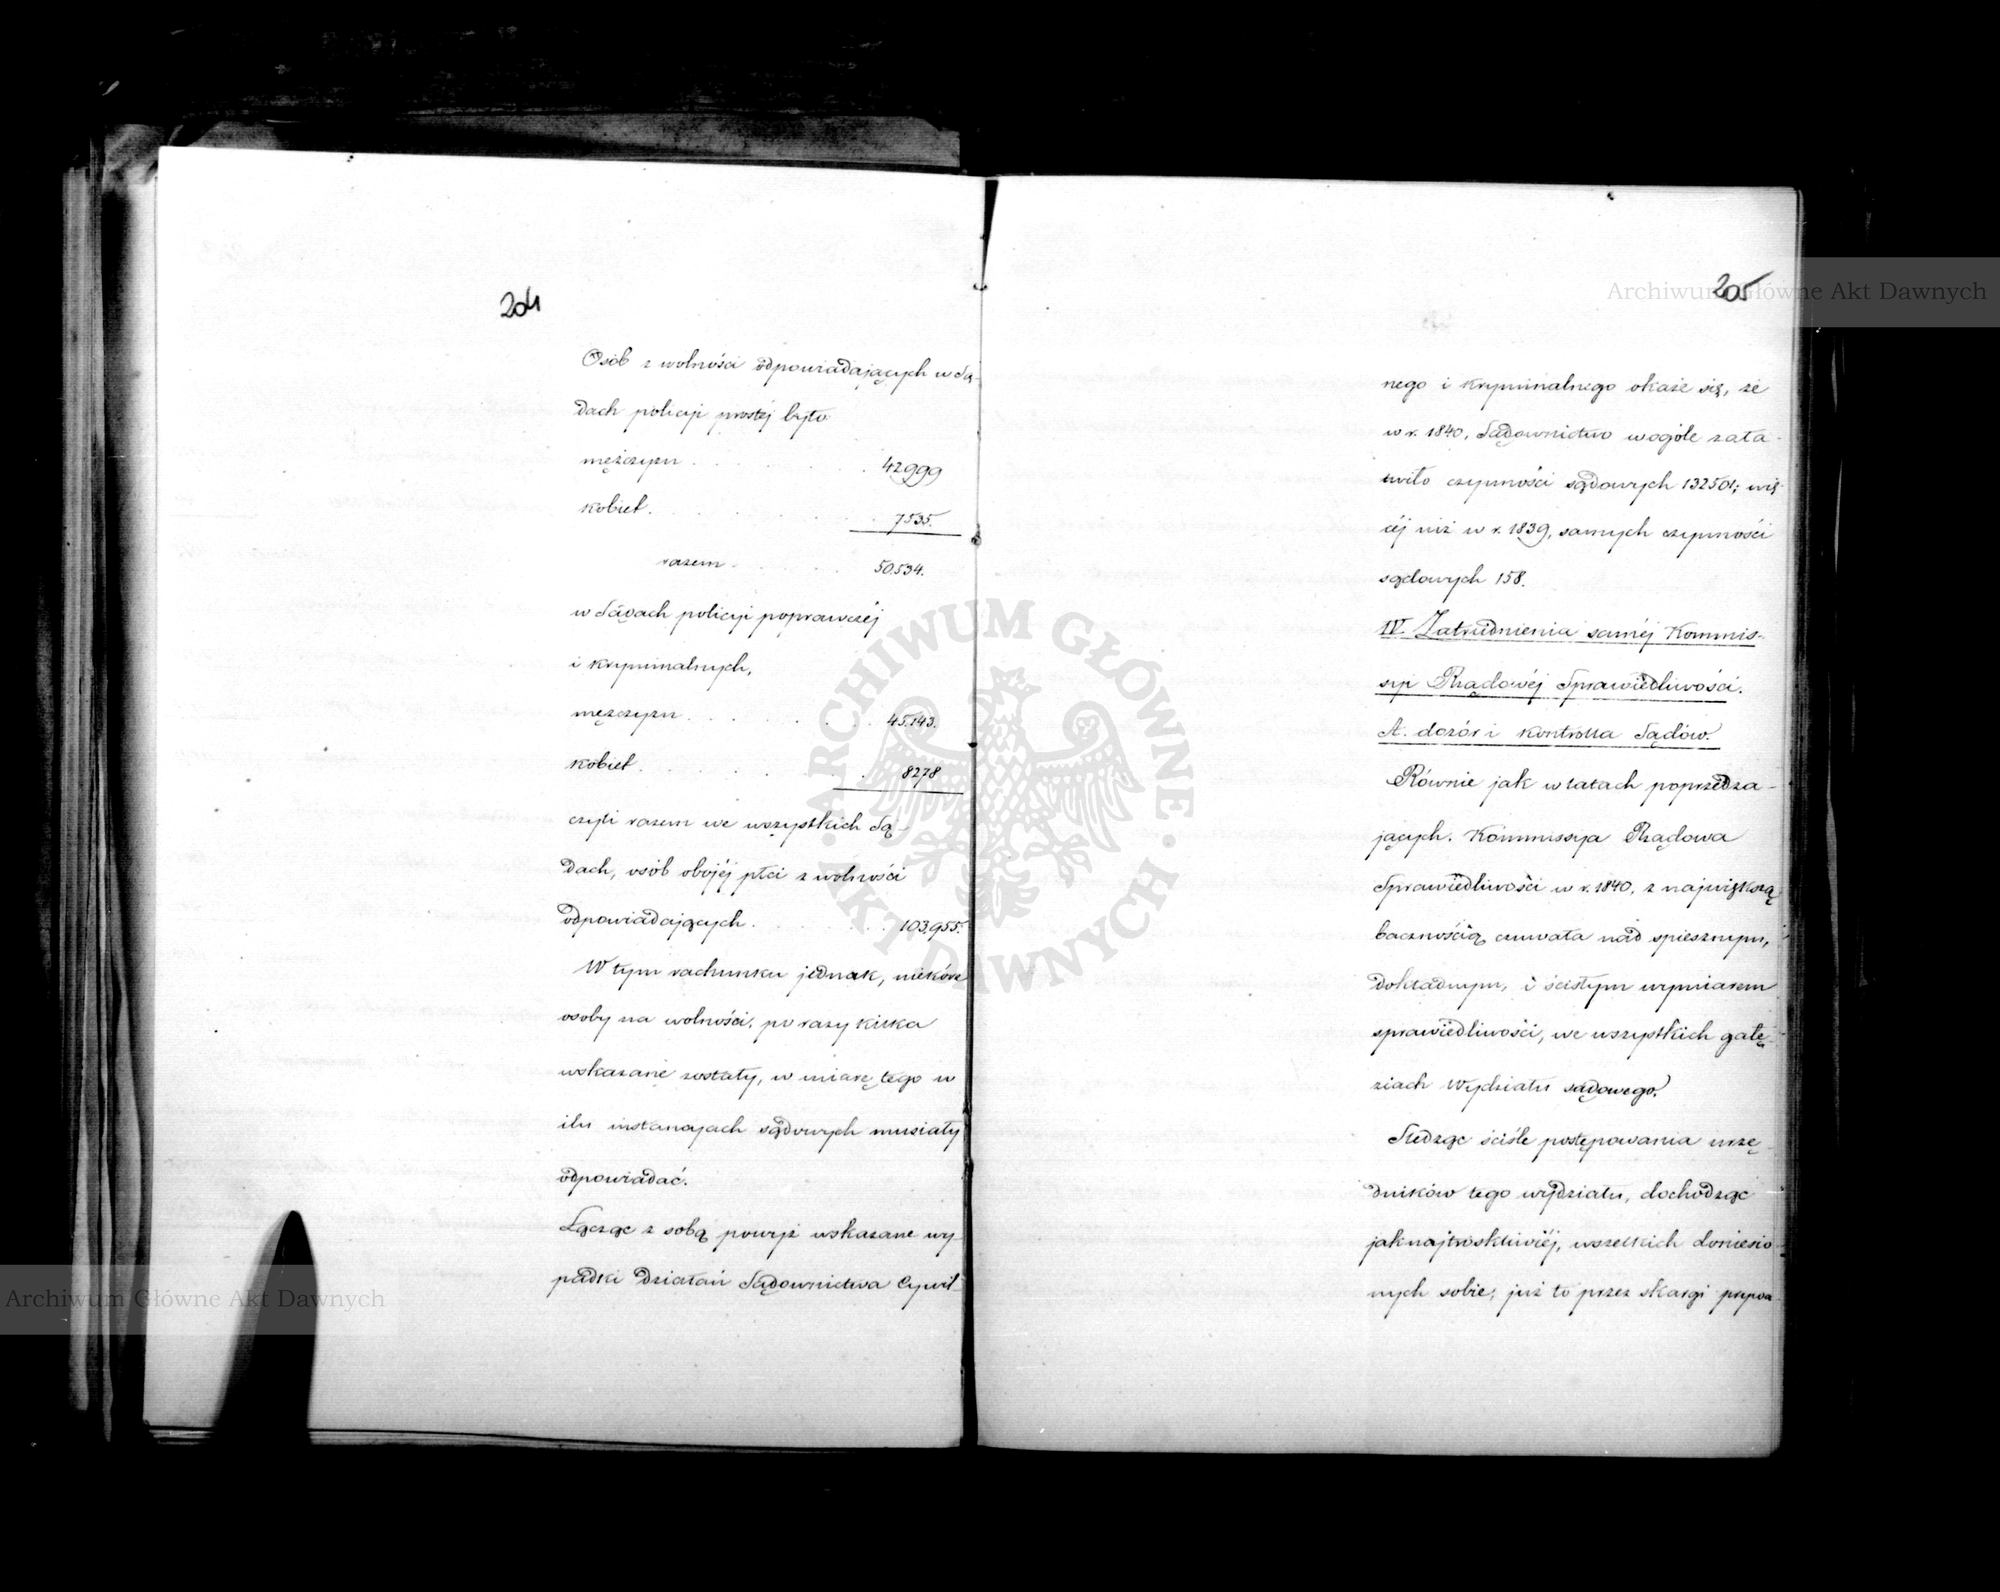 204
Osób z wolności odpowiadających w Są-
dach policyi prostéj było:
mężczyzn . . . . . . . 42999
kobiet . . . . . . . 7535.
razem . . . . . 50.534.
w Sądach policyi poprawczéj
i kryminalnych,
mężczyzn . . . . . . . 45.143.
kobiet . . . . . . . 8278
czyli razem we wszystkich Są-
dach, osób obojéj płci z wolności
odpowiadających . . . . . . 103,955.
W tym rachunku jednak, niektóre
osoby na wolności, po razy kilka
wskazane zostały, w miarę tego w
ilu instancyach sądowych musiały
odpowiadać.
Łącząc z sobą powyż wskazane wy-
padki działań Sądownictwa Cywil-
205
nego i kryminalnego okaże się, że
w r. 1840, Sądownictwo wogóle zała-
twiło czynności sądowych 132501; wię
céj niż w r. 1839, samych czynności
sądowych 158.
IV. Zatrudnienia saméj Kommis-
syi Rządowéj Sprawiedliwości.
A. dozór i kontrolla Sądów.
Równie jak w latach poprzedza-
jących. Kommissya Rządowa
Sprawiedliwości w r. 1840, z największą
bacznością czuwała nad spiesznym,
dokładnym, i ścisłym wymiarem
sprawiedliwości, we wszystkich gałę-
ziach Wydziału sądowego.
Śledząc ściśle postępowania urzę-
dników tego wydziału, dochodząc
jaknajtroskliwiéj, wszelkich doniesio-
nych sobie, już to przez skargi prywa-
Archiwum Główne Akt Dawnych
Archiwum Główne Akt Dawnych
ARCHIWUM GŁÓWNE
AKT DAWNYCH